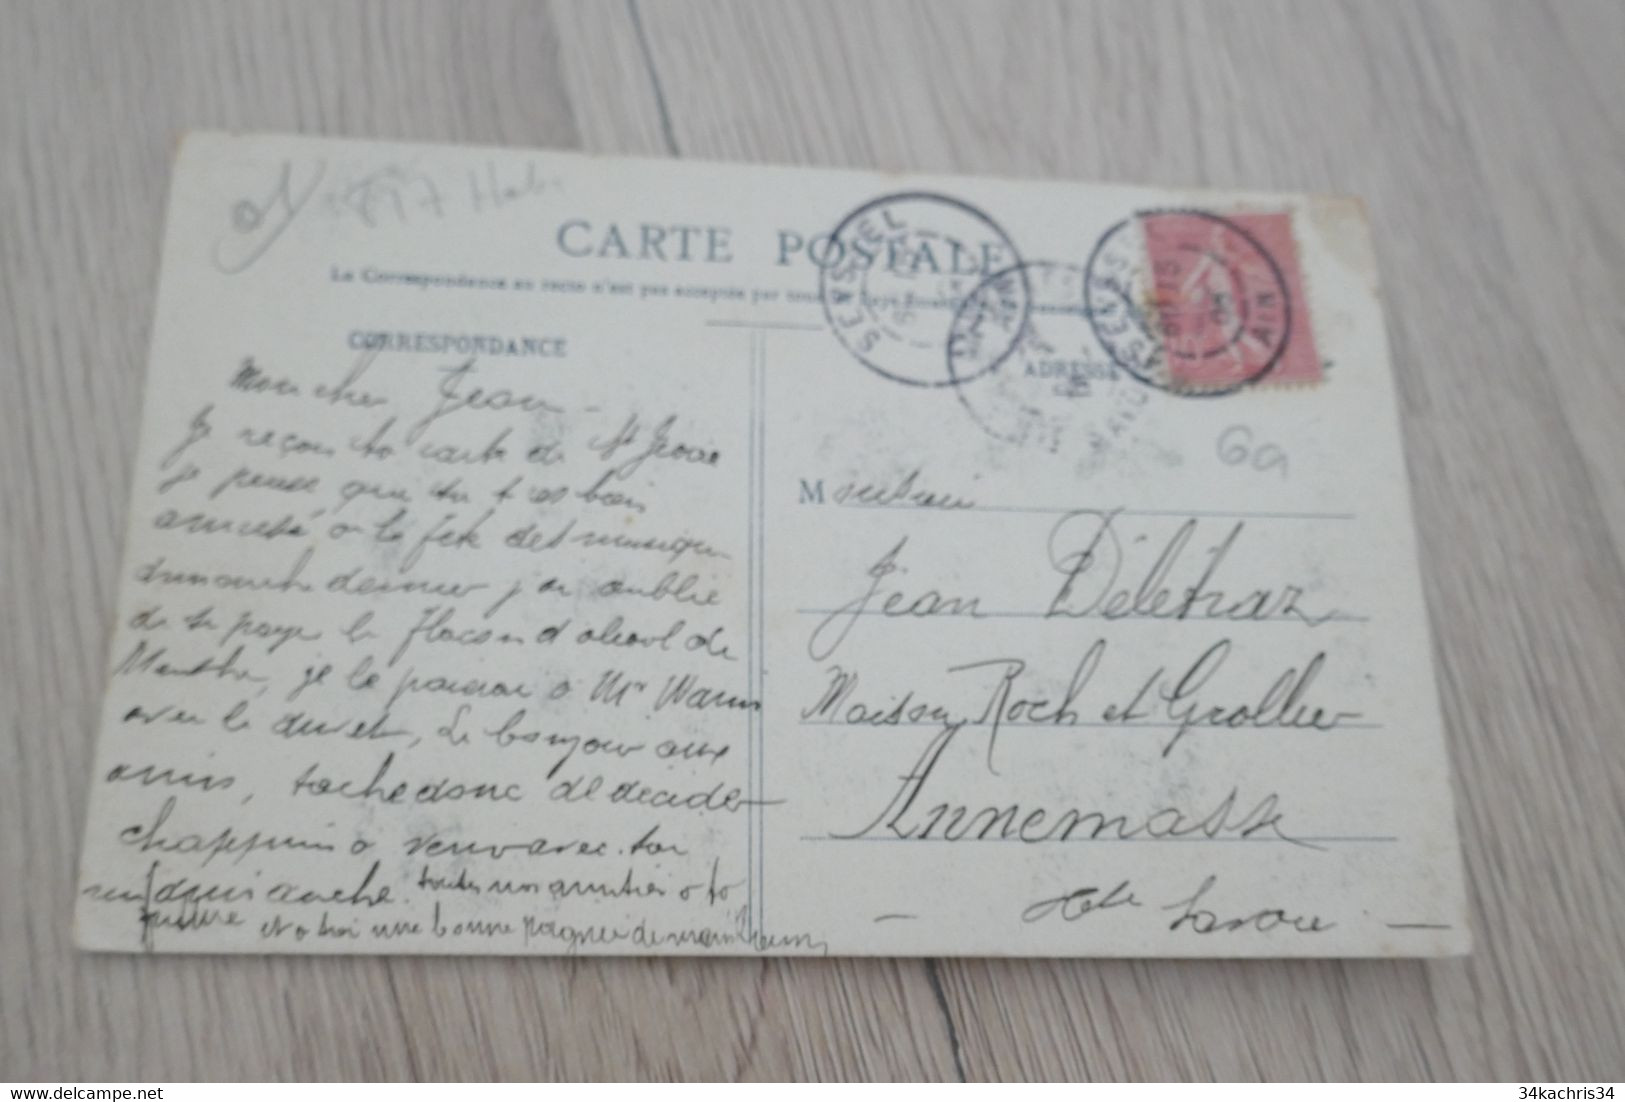 897 Hab.
CARTE POSTALE
La Correspondance au recto n'est pas acceptée par tous
CORRESPONDANCE
ADRESSE
SEYSSEL
SEYSSEL AIN
6a
Mon cher Jean -
Je reçois ta carte de St Jeoire
je pense que tu t es bien
amusé, a la fête des musiques
dimanche dernier j'ai oublié
de te payer le flacon d'alcool de
Menthe, je le paierai a Mr
avec le duvet, Le bonjour aux
amis, tache donc de decider
chappuis a venir avec toi
dimanche. toutes nos amitiés a ta
et a toi une bonne poignée de main
Monsieur
Jean Délétraz
Maison Roch et Grollier
Annemasse
- Hte Savoie -
www.delcampe.net
34kachris34